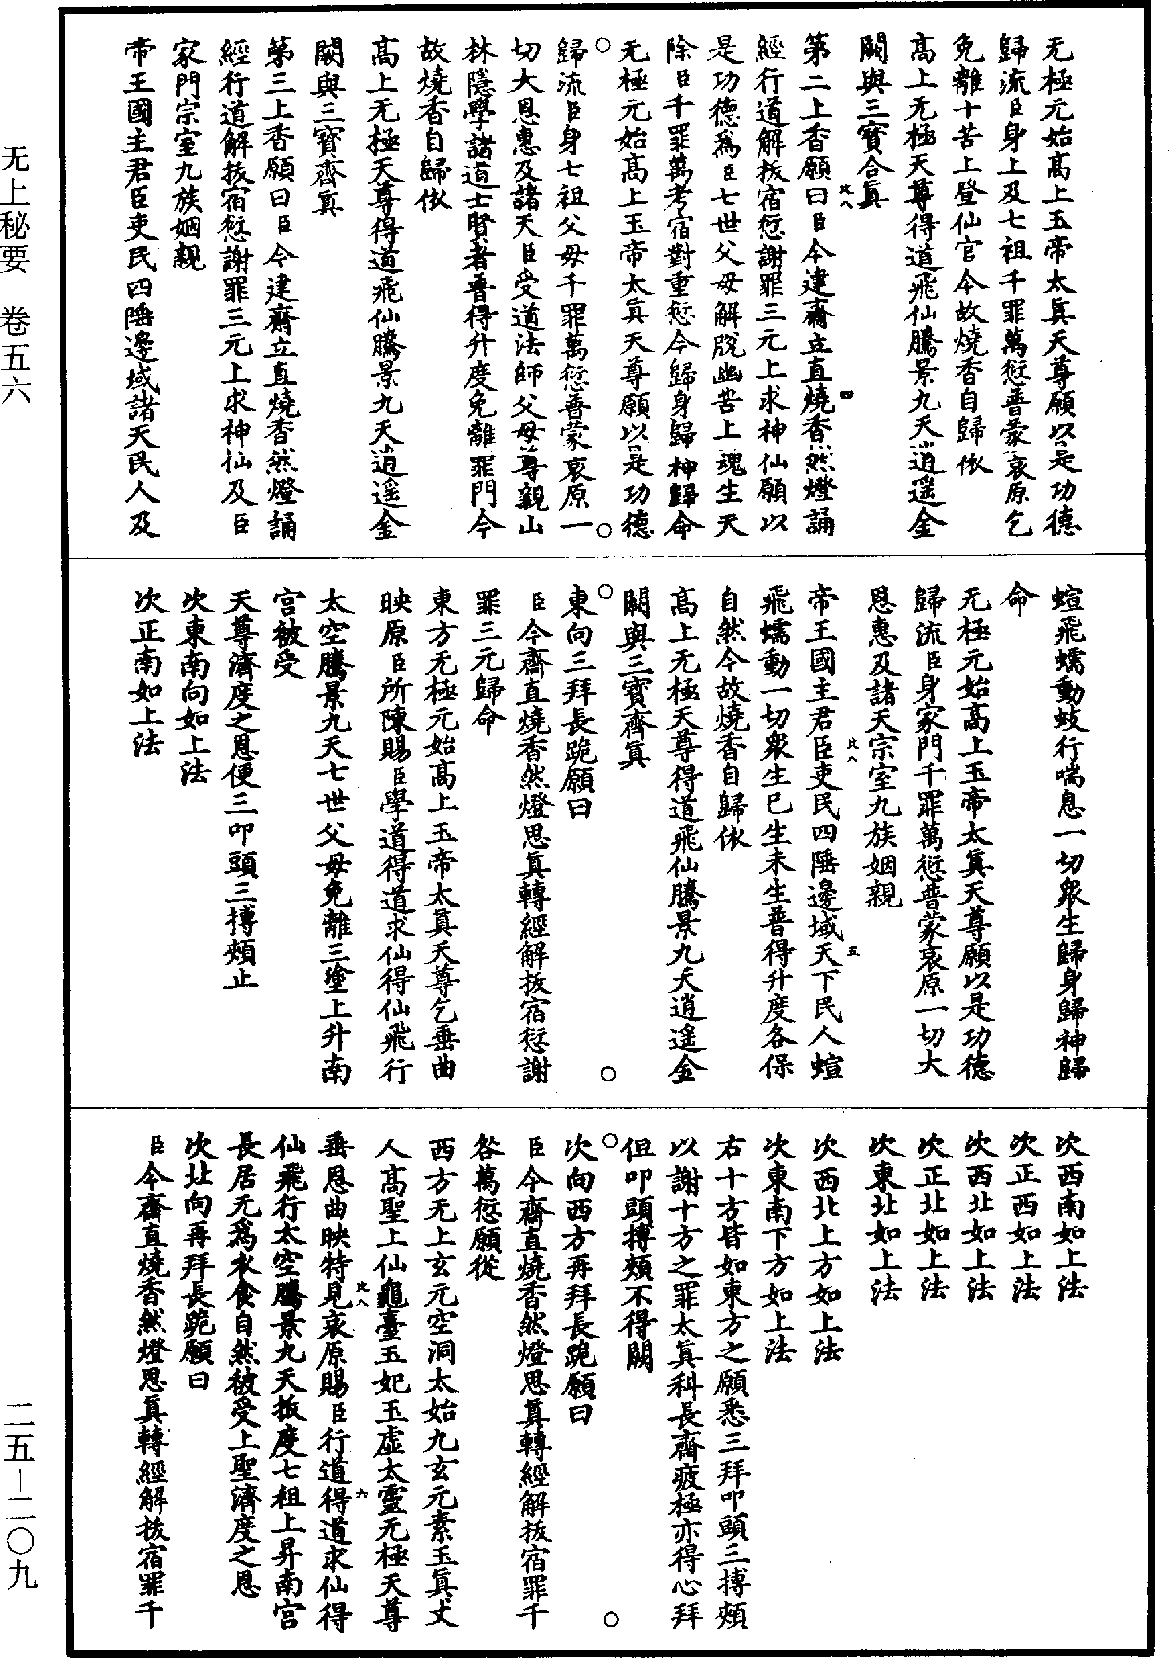 无極元始高上玉帝太真天尊願以是功德
歸流臣身上及七祖千罪萬愆普蒙哀原乞
免離十苦上登仙官今故燒香自歸依
高上无極天尊得道飛仙騰景九天逍遥金
闕與三寶合真
第二上香願曰臣今建齋立直燒香然燈誦
經行道解拔宿愆謝罪三元上求神仙願以
是功德為臣七世父母解脱幽苦上魂生天
除臣千罪萬考宿對重愆今歸身歸神歸命
无極元始高上玉帝太真天尊願以是功德
歸流臣身七祖父母千罪萬愆普蒙哀原一
切大恩惠及諸天臣受道法師父母尊親山
林隱學諸道士賢者普得升度免離罪門今
故燒香自歸依
高上无極天尊得道飛仙騰景九天逍遥金
闕與三寶齊真
第三上香願曰臣今建齋立直燒香然燈誦
經行道解拔宿愆謝罪三元上求神仙及臣
家門宗室九族姻親
帝王國主君臣吏民四陲邊域諸天民人及
蝖飛蠕動蚑行喘息一切衆生歸身歸神歸
命
无極元始高上玉帝太真天尊願以是功德
歸流臣身家門千罪萬愆普蒙哀原一切大
恩惠及諸天宗室九族姻親
帝王國主君臣吏民四陲邊域天下民人蝖
飛蠕動一切衆生已生未生普得升度各保
自然今故燒香自歸依
高上无極天尊得道飛仙騰景九天逍遥金
闕與三寶齊真
東向三拜長跪願曰
臣今齋直燒香然燈思真轉經解拔宿愆謝
罪三元歸命
東方无極元始高上玉帝太真天尊乞垂曲
映原臣所陳賜臣學道得道求仙得仙飛行
太空騰景九天七世父母免離三塗上升南
宫被受
天尊濟度之恩便三叩頭三搏頰止
次東南向如上法
次正南如上法
次西南如上法
次正西如上法
次西北如上法
次正北如上法
次東北如上法
次西北上方如上法
次東南下方如上法
右十方皆如東方之願悉三拜叩頭三搏頰
以謝十方之罪太真科長齋疲極亦得心拜
但叩頭搏頰不得闕
次向西方再拜長跪願曰
臣今齋直燒香然燈思真轉經解拔宿罪千
咎萬愆願從
西方无上玄元空洞太始九玄元素玉真丈
人高聖上仙龜臺五妃玉虚太靈无極天尊
垂恩曲映特見哀原賜臣行道得道求仙得
仙飛行太空騰景九天拔度七祖上昇南宫
長居无為衣食自然被受上聖濟度之恩
次北向再拜長跪願曰
臣今齋直燒香然燈思真轉經解拔宿罪千
无上秘要 卷五六
二五—二〇九